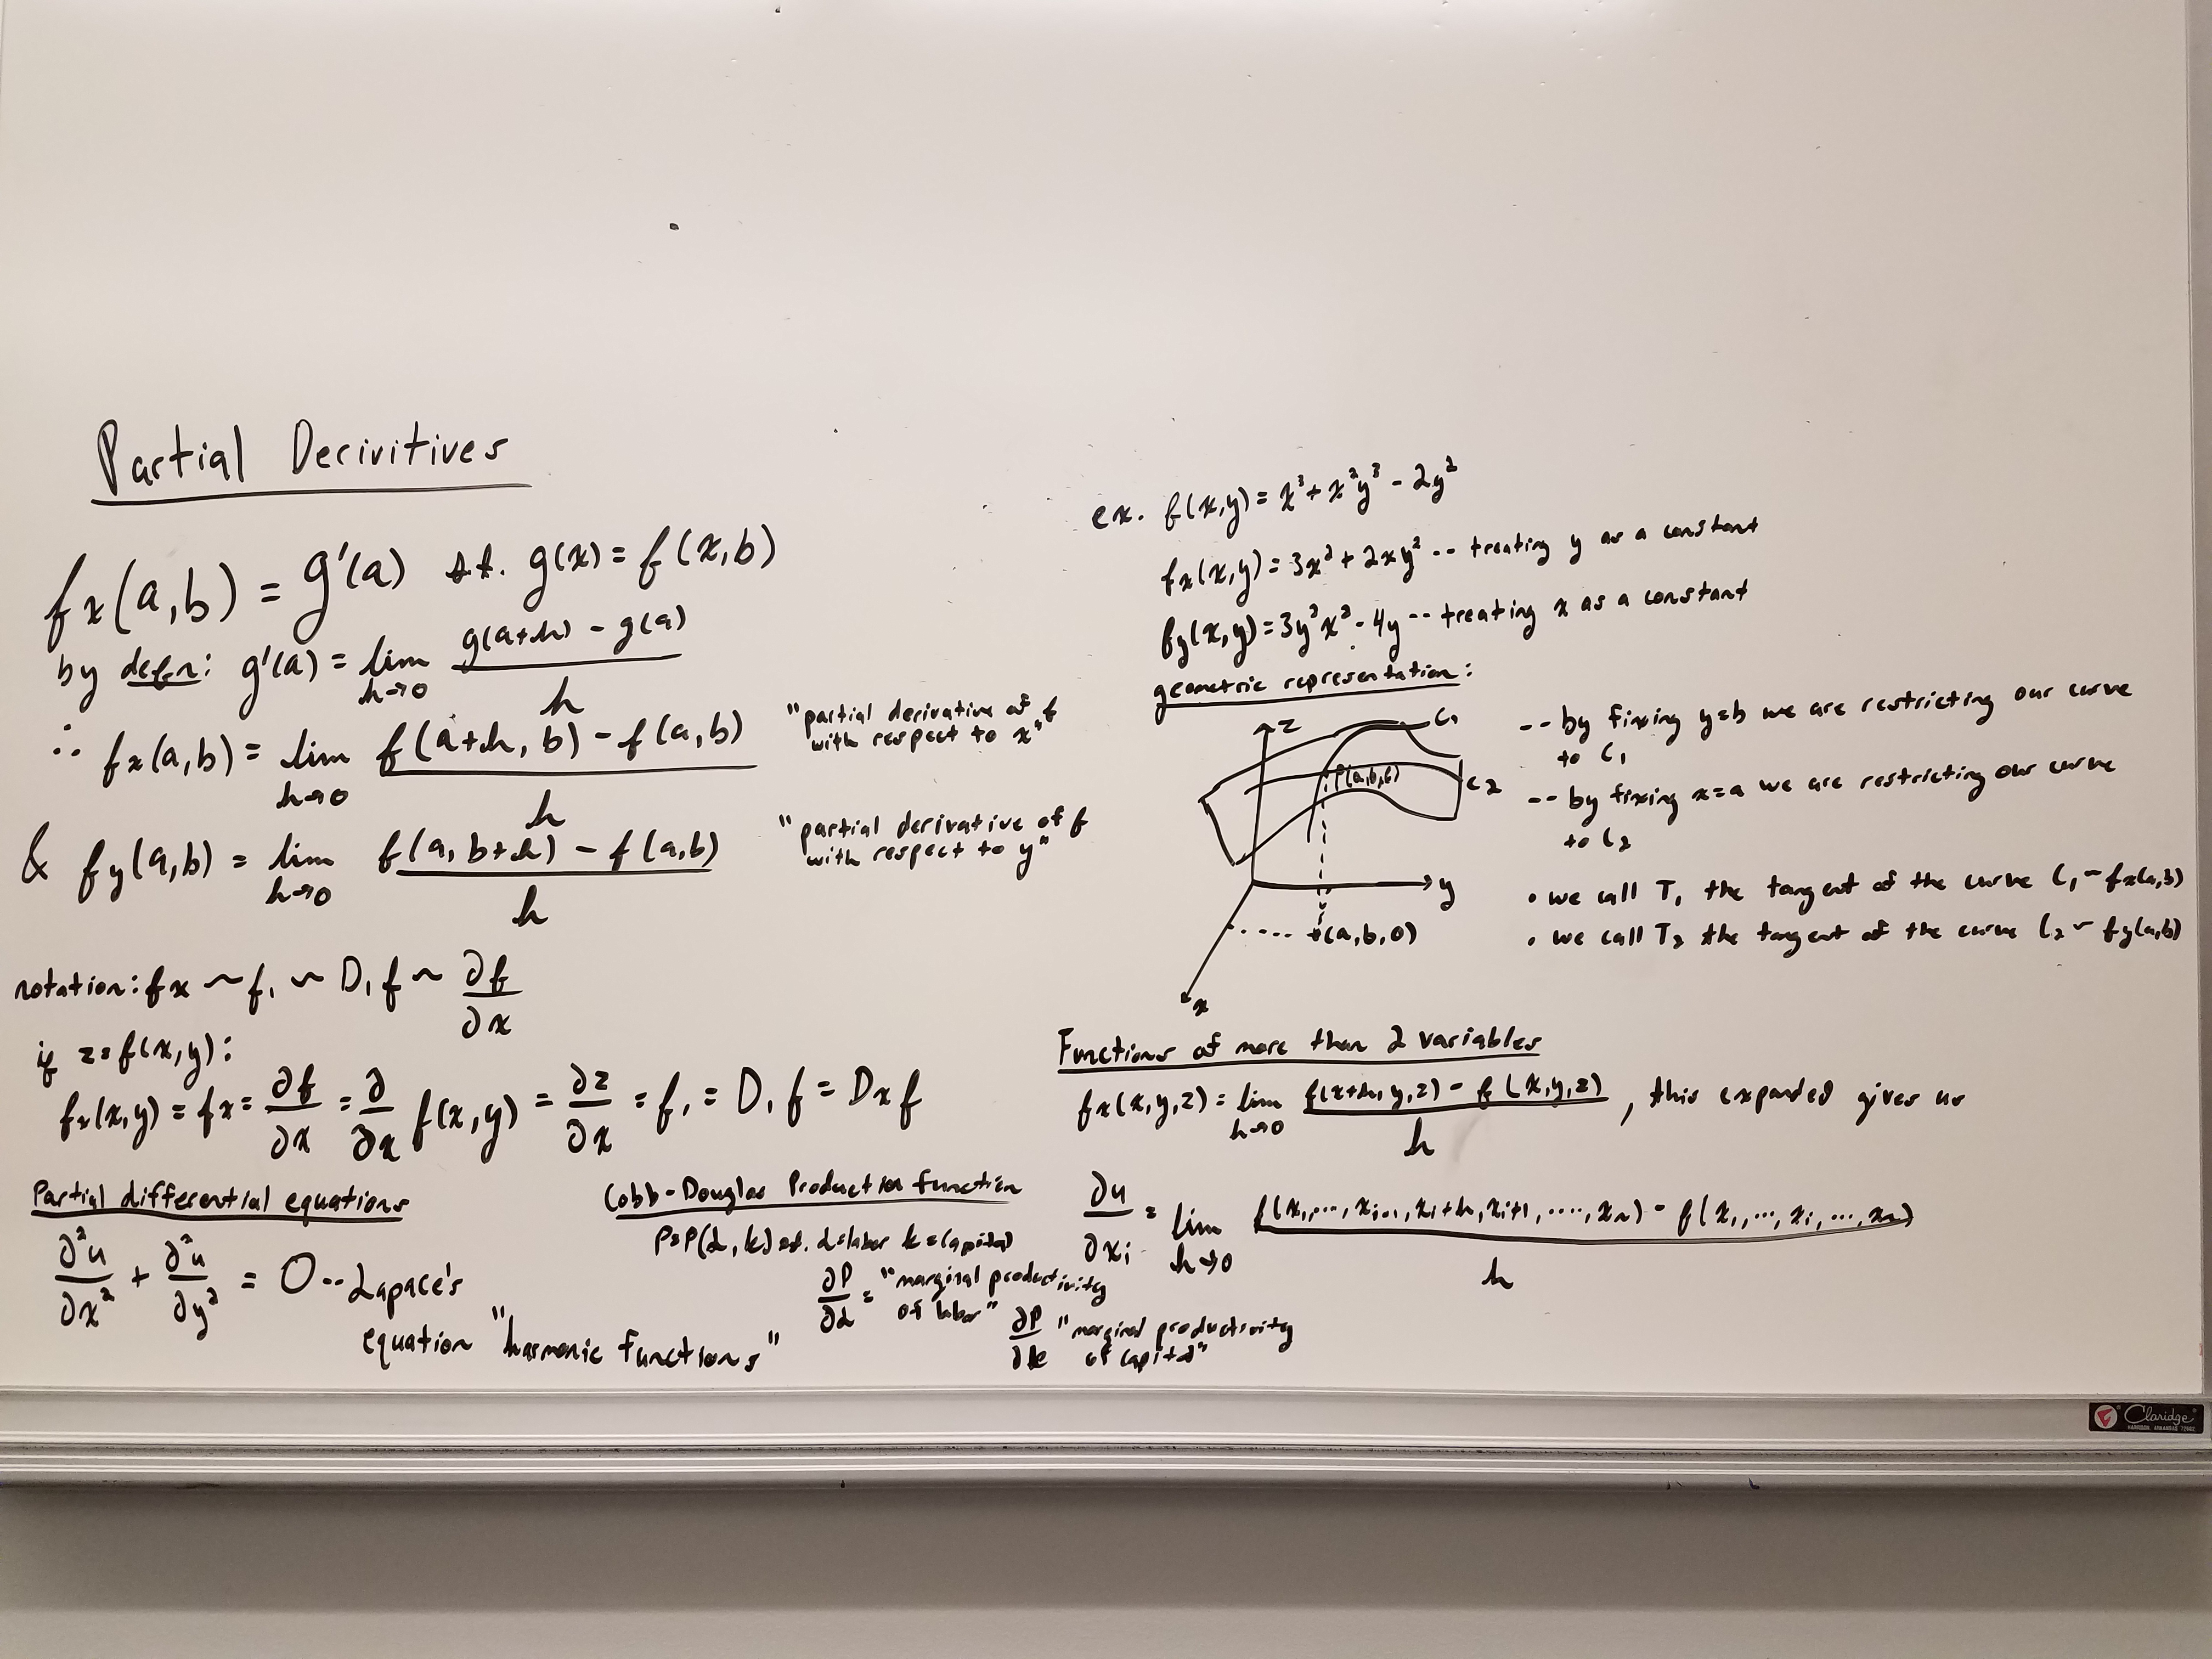 Partial Derivitives
fx(a,b) = g'(a) s.t. g(x) = f(x,b)
by defn: g'(a) = lim h→0 g(a+h) - g(a) / h
∴ fx(a,b) = lim h→0 f(a+h, b) - f(a,b) / h
"partial derivative of f
with respect to x"
& fy(a,b) = lim h→0 f(a, b+h) - f(a,b) / h
"partial derivative of f
with respect to y"
notation: fx ~ f₁ ~ D₁f ~ ∂f/∂x
if z=f(x,y):
fx(x,y) = fx = ∂f/∂x = ∂/∂x f(x,y) = ∂z/∂x = f₁ = D₁f = Dxf
Partial differential equations
∂²u/∂x² + ∂²u/∂y² = 0 -- Lapace's
equation "harmonic functions"
Cobb-Douglas Production function
P=P(L,k) s.t. L=labor k=capital
∂P/∂L = "marginal productivity
of labor"
∂P/∂k "marginal productivity
of capital"
ex. f(x,y) = x³ + x²y³ - 2y²
fx(x,y) = 3x² + 2xy² -- treating y as a constant
fy(x,y) = 3y²x² - 4y -- treating x as a constant
geometric representation:
z
C₁
C2
y
(a,b,0)
x
-- by fixing y=b we are restricting our curve
to C₁
-- by fixing x=a we are restricting our curve
to C₂
• we call T₁ the tangent of the curve C₁ ~ fx(a,b)
• we call T₂ the tangent of the curve C₂ ~ fy(a,b)
Functions of more than 2 variables
fx(x,y,z) = lim h→0 f(x+h,y,z) - f(x,y,z) / h , this expanded gives us
∂u/∂xi = lim h→0 f(x₁,...,xi-1,xi+h,xi+1,....,xn) - f(x₁,...,xi,...,xn) / h
Claridge
HARRISON, ARKANSAS 72602